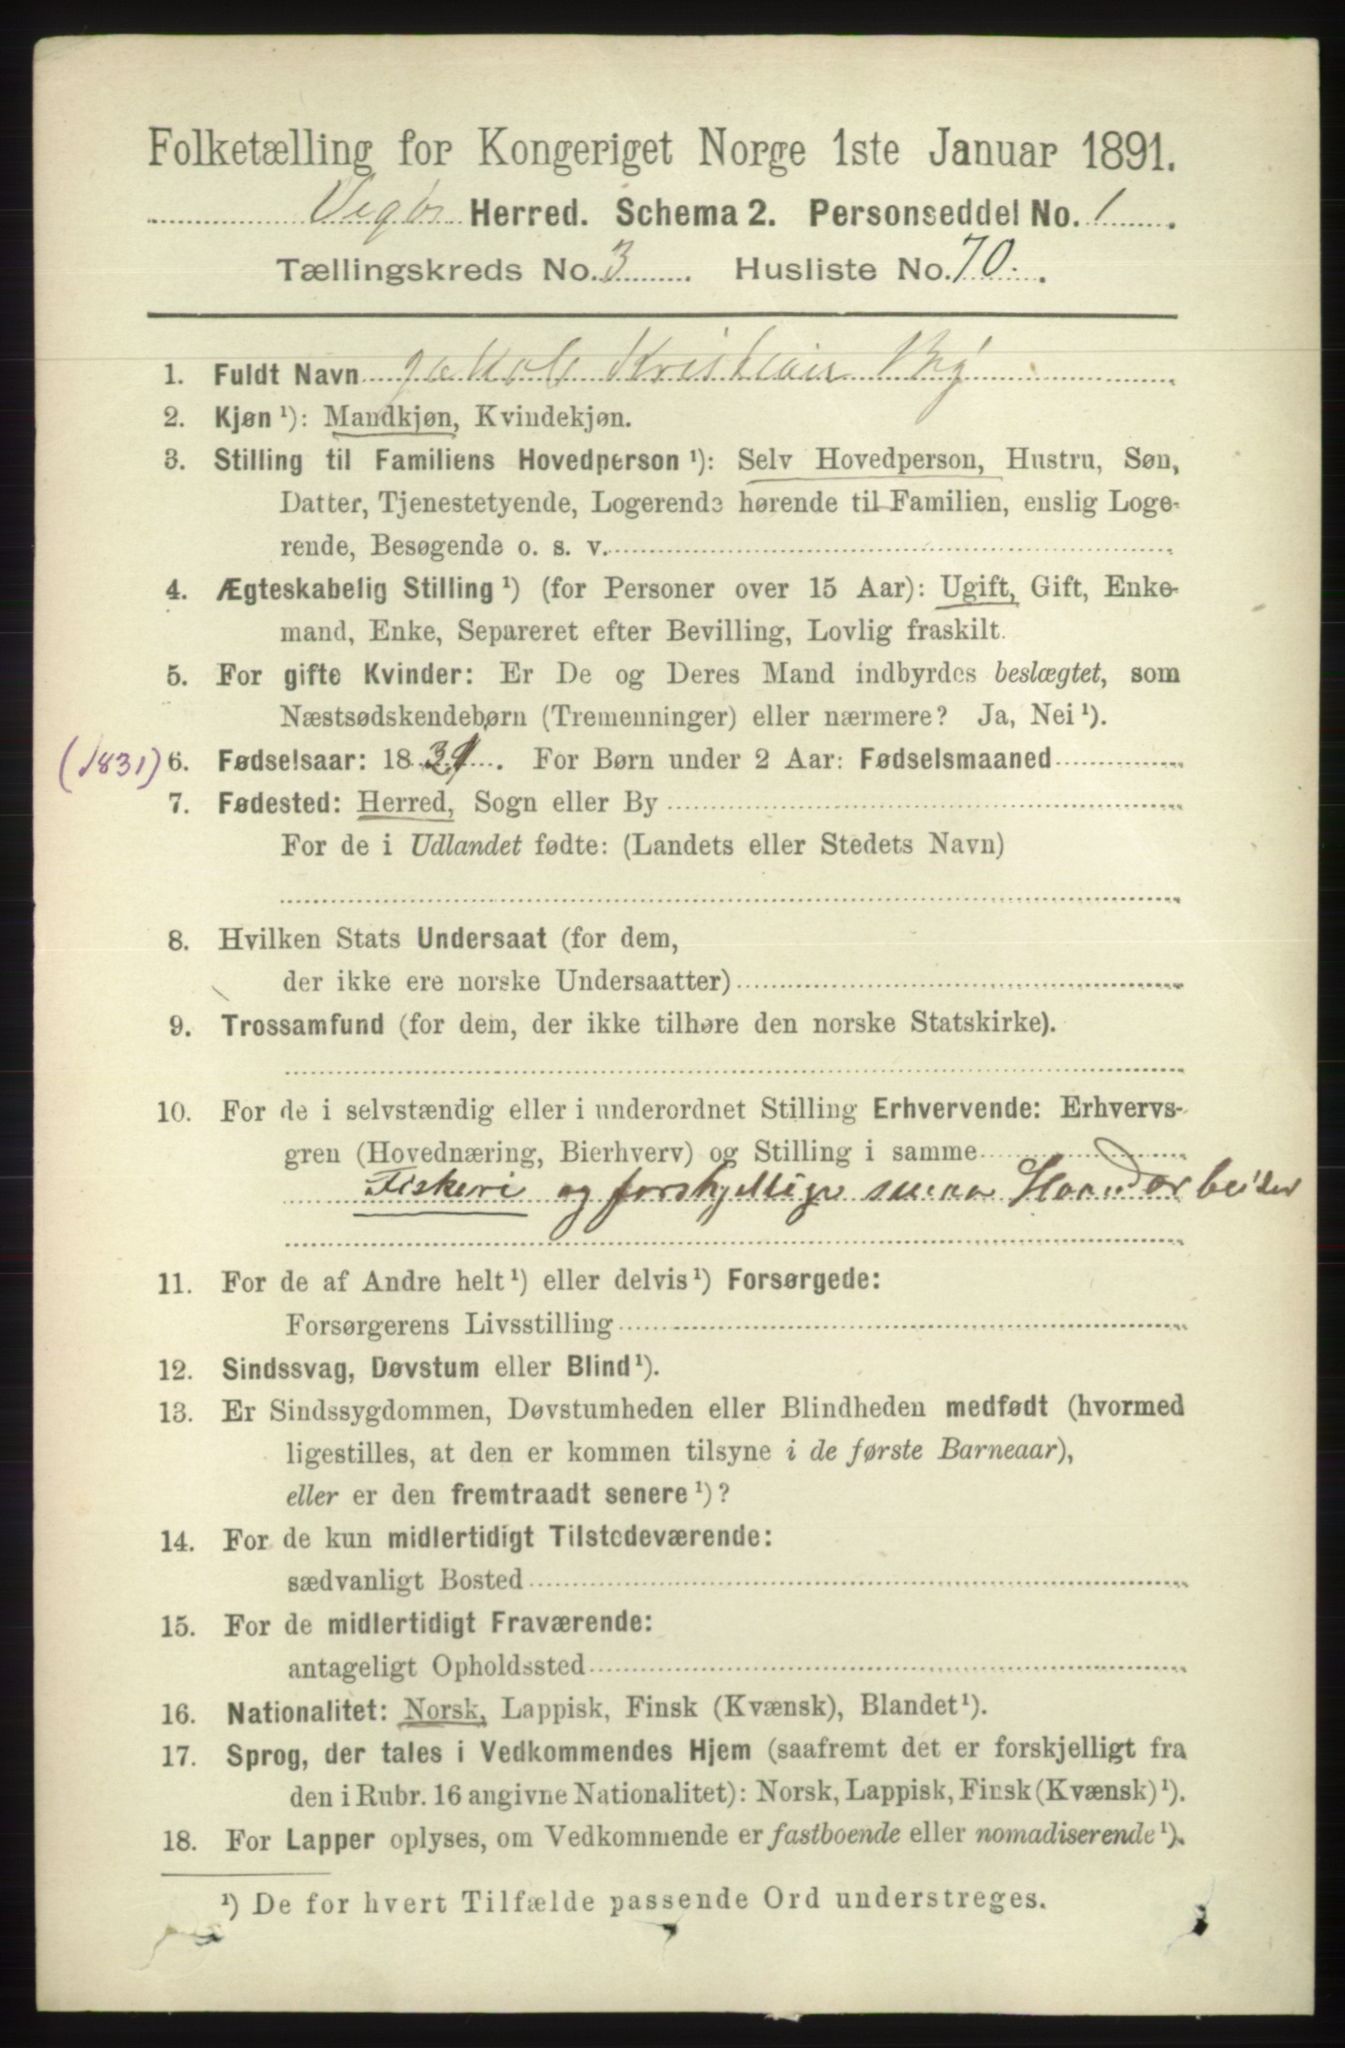 Folketælling for Kongeriget Norge 1ste Januar 1891.
Vegøs Herred. Schema 2. Personseddel No. 1
Tællingskreds No. 3 Husliste No. 70.
1. Fuldt Navn Jakob Kristian
2. Kjøn ¹): Mandkjøn, Kvindekjøn.
3. Stilling til Familiens Hovedperson ¹): Selv Hovedperson, Hustru, Søn,
Datter, Tjenestetyende, Logerende hørende til Familien, enslig Loge-
rende, Besøgende o. s. v.
4. Ægteskabelig Stilling ¹) (for Personer over 15 Aar): Ugift, Gift, Enke-
mand, Enke, Separeret efter Bevilling, Lovlig fraskilt.
5. For gifte Kvinder: Er De og Deres Mand indbyrdes beslægtet, som
Næstsødskendebørn (Tremenninger) eller nærmere? Ja, Nei ¹).
(1831) 6. Fødselsaar: 1831. For Børn under 2 Aar: Fødselsmaaned
7. Fødested: Herred, Sogn eller By
For de i Udlandet fødte: (Landets eller Stedets Navn)
8. Hvilken Stats Undersaat (for dem,
der ikke ere norske Undersaatter)
9. Trossamfund (for dem, der ikke tilhøre den norske Statskirke).
10. For de i selvstændig eller i underordnet Stilling Erhvervende: Erhvervs-
gren (Hovednæring, Bierhverv) og Stilling i samme
Fiskeri og forskjellige smaa Haandarbeider
11. For de af Andre helt ¹) eller delvis ¹) Forsørgede:
Forsørgerens Livsstilling
12. Sindssvag, Døvstum eller Blind ¹).
13. Er Sindssygdommen, Døvstumheden eller Blindheden medfødt (hvormed
ligestilles, at den er kommen tilsyne i de første Barneaar),
eller er den fremtraadt senere ¹)?
14. For de kun midlertidigt Tilstedeværende:
sædvanligt Bosted
15. For de midlertidigt Fraværende:
antageligt Opholdssted
16. Nationalitet: Norsk, Lappisk, Finsk (Kvænsk), Blandet ¹).
17. Sprog, der tales i Vedkommendes Hjem (saafremt det er forskjelligt fra
den i Rubr. 16 angivne Nationalitet): Norsk, Lappisk, Finsk (Kvænsk) ¹).
18. For Lapper oplyses, om Vedkommende er fastboende eller nomadiserende ¹).
¹) De for hvert Tilfælde passende Ord understreges.